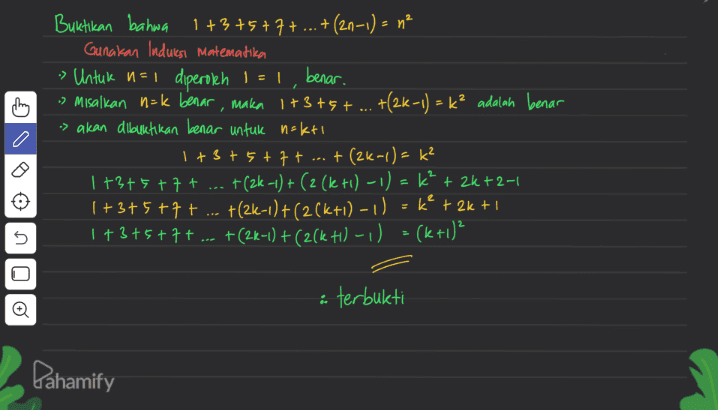 Buktikan bahwa 1+3+5+7+...+(2n-1) = n²
Gunakan Induksi Matematika
:> Untuk n=1 diperoleh 1=1, benar.
:> Misalkan n=k benar, maka 1+3+5+...+(2k-1) = k² adalah benar
:> akan dibuktikan benar untuk n=k+1
1+3+5+7+...+(2k-1) = k²
1+3+5+7+...+(2k-1)+(2(k+1)-1) = k²+2k+2-1
1+3+5+7+...+(2k-1)+(2(k+1)-1) = k²+2k+1
1+3+5+7+...+(2k-1)+(2(k+1)-1) = (k+1)²
∴ terbukti
Pahamify